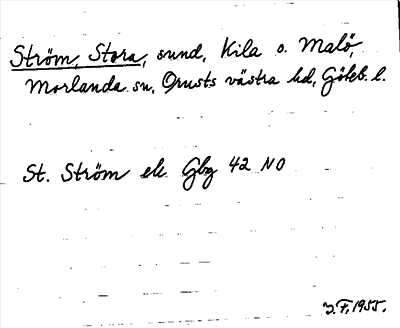 Ström, Stora, sund, Kila o. Malö,
Morlanda sn, Orusts västra hd, Göteb. l.
St. Ström ek Gbg 42 NO
J.F. 1955.